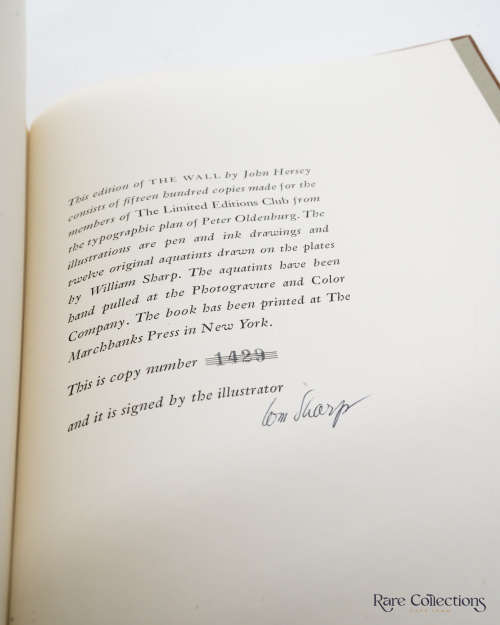 This edition of THE WALL by John Hersey
consists of fifteen hundred copies made for the
members of The Limited Editions Club from
the typographic plan of Peter Oldenburg. The
illustrations are pen and ink drawings and
twelve original aquatints drawn on the plates
by William Sharp. The aquatints have been
hand pulled at the Photogravure and Color
Company. The book has been printed at The
Marchbanks Press in New York.
This is copy number 1429
and it is signed by the illustrator
Wm Sharp
Rare Collections